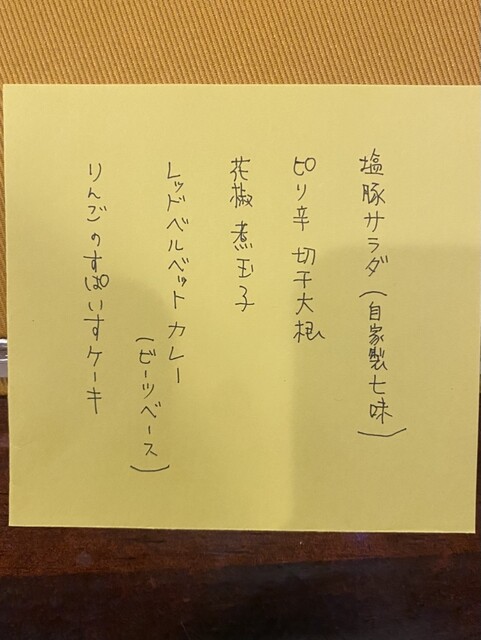 塩豚サラダ(自家製七味)
ピリ辛 切干大根
花椒 煮玉子
レッドベルベット カレー
(ビーツベース)
りんごのすぱいすケーキ